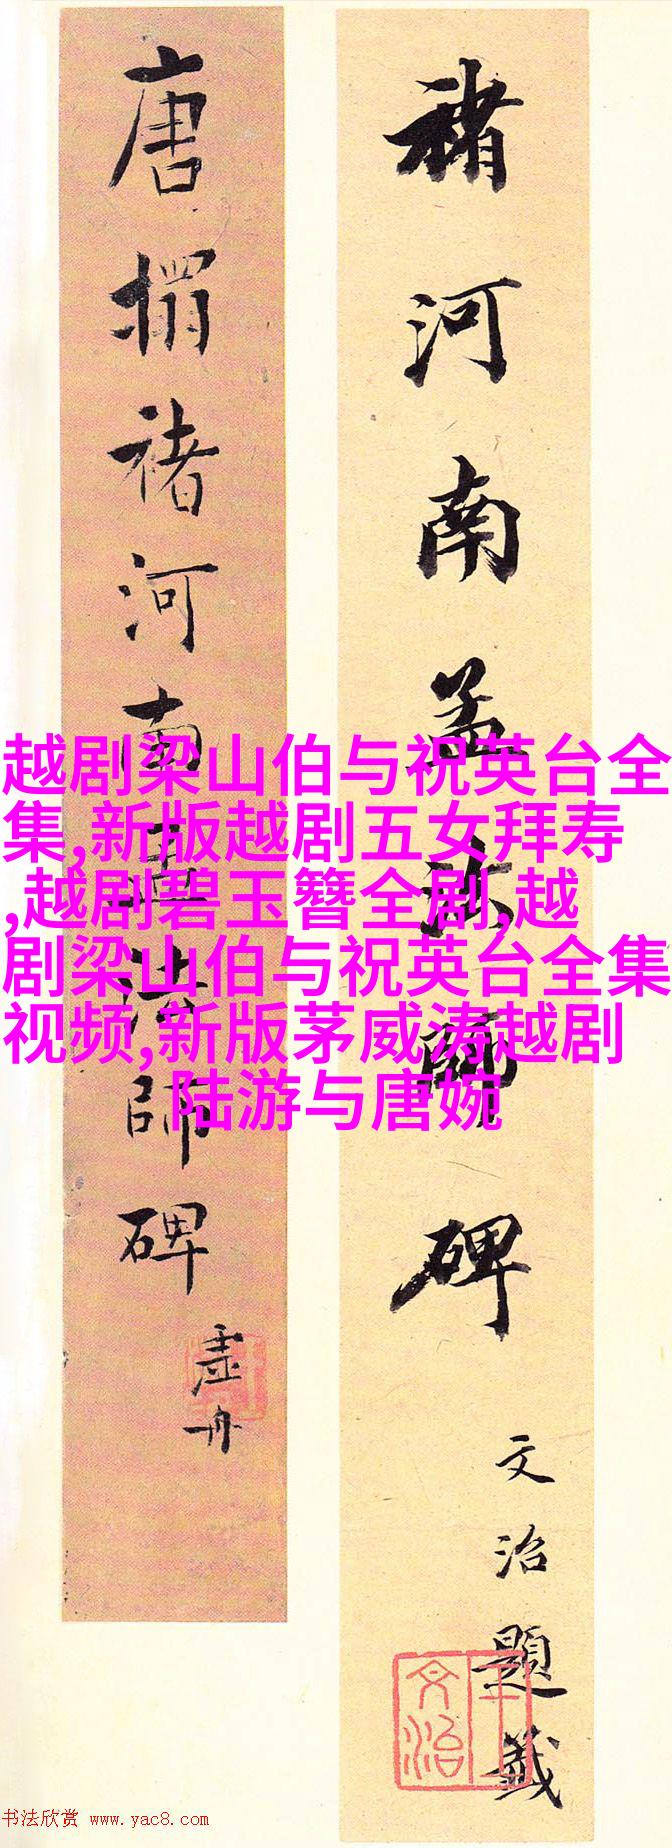 褚河南孟法師碑
文治題籤
王文治
唐搨褚河南孟法師碑
虚舟
越剧梁山伯与祝英台全
集,新版越剧五女拜寿
,越剧碧玉簪全剧,越
剧梁山伯与祝英台全集
视频,新版茅威涛越剧
陆游与唐婉
书法欣赏 www.yac8.com